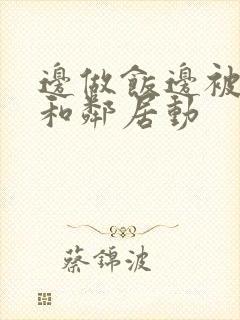 邊做飯邊被
和鄰居動
蔡錦波